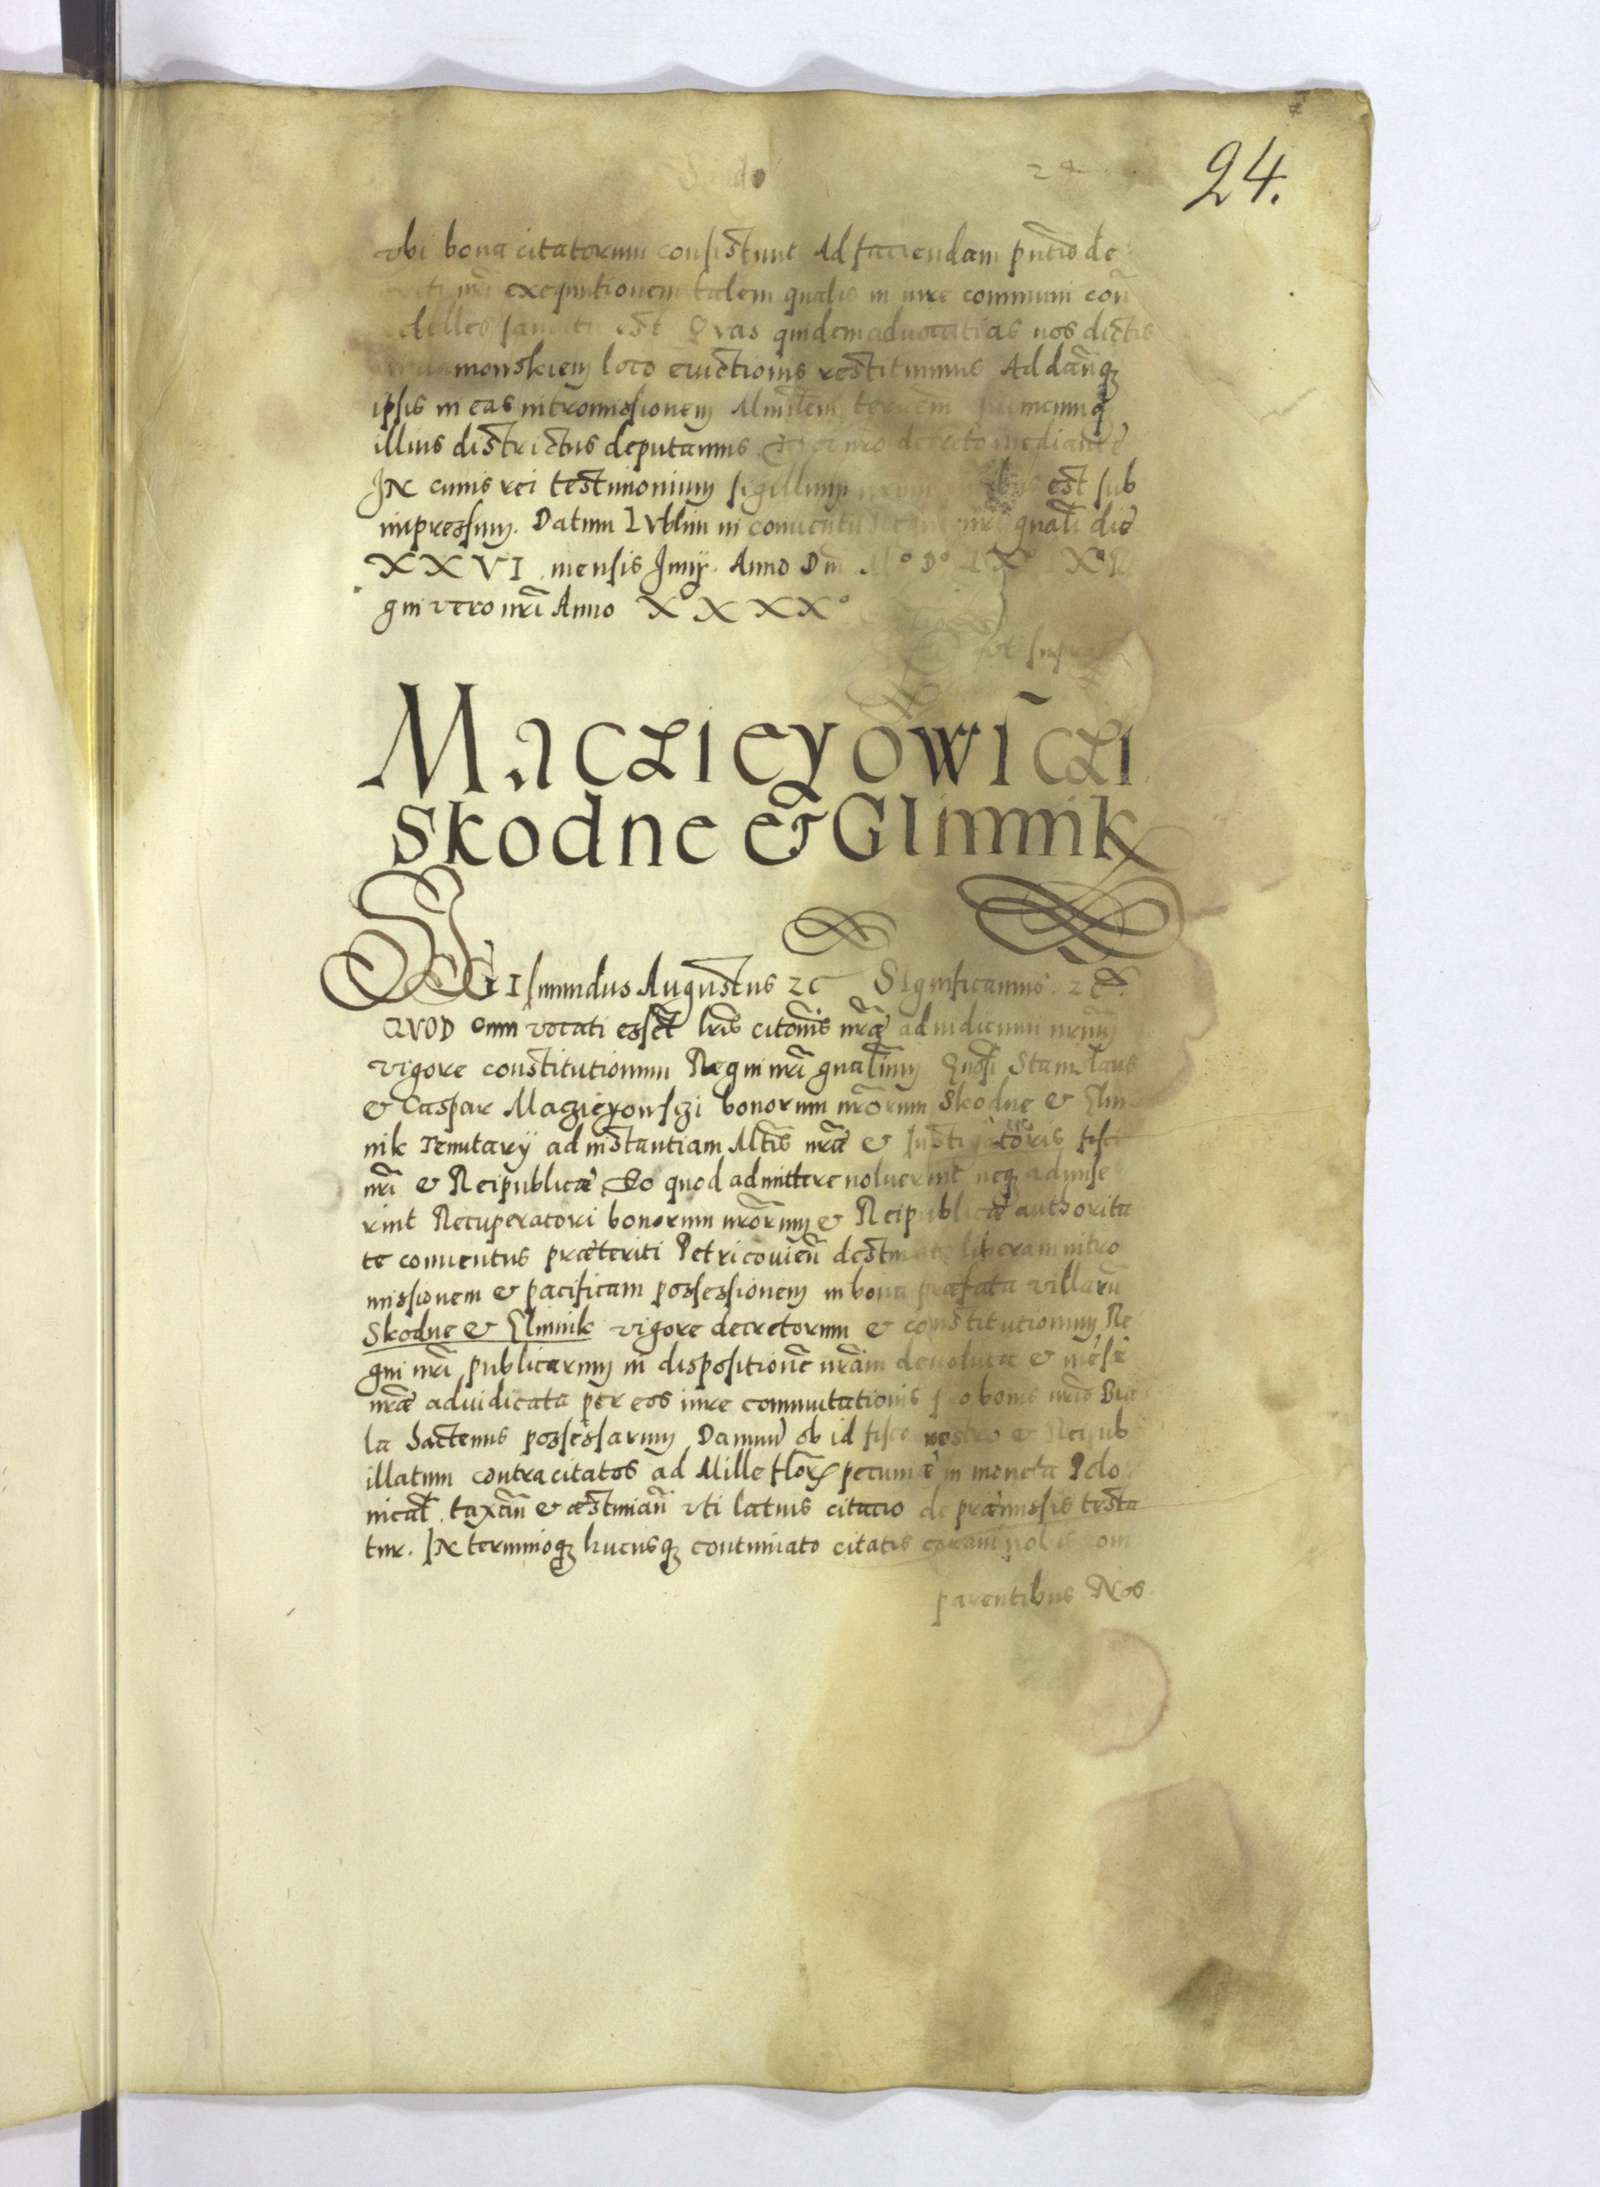 24.
vbi bona citatorum consistunt Ad faciendam pñtis de
nri exequutionem talem qualis in iure communi con
est Quas quidem aduocatias nos dictis
monskiem loco euictionis restituimus Ad danq
ipsis in eas intromissionem
illius districtus deputamus nro decreto mediante
IN cuius rei testimonium sigillum est sub
impressum. Datum Lublin in conuentu Regni nri gnali die
XXVI mensis Junij. Anno Dni M° D° LX° IX° R
gni vero nri Anno XXXX°
vt supra
Maczieyowiczi
Skodne & Glinnik
SIGIsmundus Augustus zc Significamus zc
QVOD cum vocati essēt lrīs citōnis nrāe ad iudicium nrūm
vigore constitutionum Regni nrī gnalium Gnosi Stanislaus
& Caspar Maczieyowsczi bonorum nrōrum Skodne & Glin
nik Tenutarij ad instantiam Mtīs nrāe & Instigatoris fisci
nrī & Reipublicæ, Eo quod admittere noluerint neq admise
rint Recuperatori bonorum nrōrum & Reipublicæ authorita
te conuentus præteriti Petricouien destinato liberam intro
missionem & pacificam possessionem in bona præfata villarū
Skodne & Glinnik vigore decretorum & constitutionum Re
gni nrī publicarum in dispositionē nrām deuoluta & mēse
nrāe adiudicata per eos iure commutationis pro bonis nrīs Bia
la hactenus possessarum Damnū ob id fisco nostro & Reipub
illatum contra citatos ad Mille flor pecuniæ in moneta Polo
nicalī taxatū & æstimatū vti latius citatio de præmissis testa
tur. IN terminoq hucusq continuato citatis coram nobis com
parentibus Nos